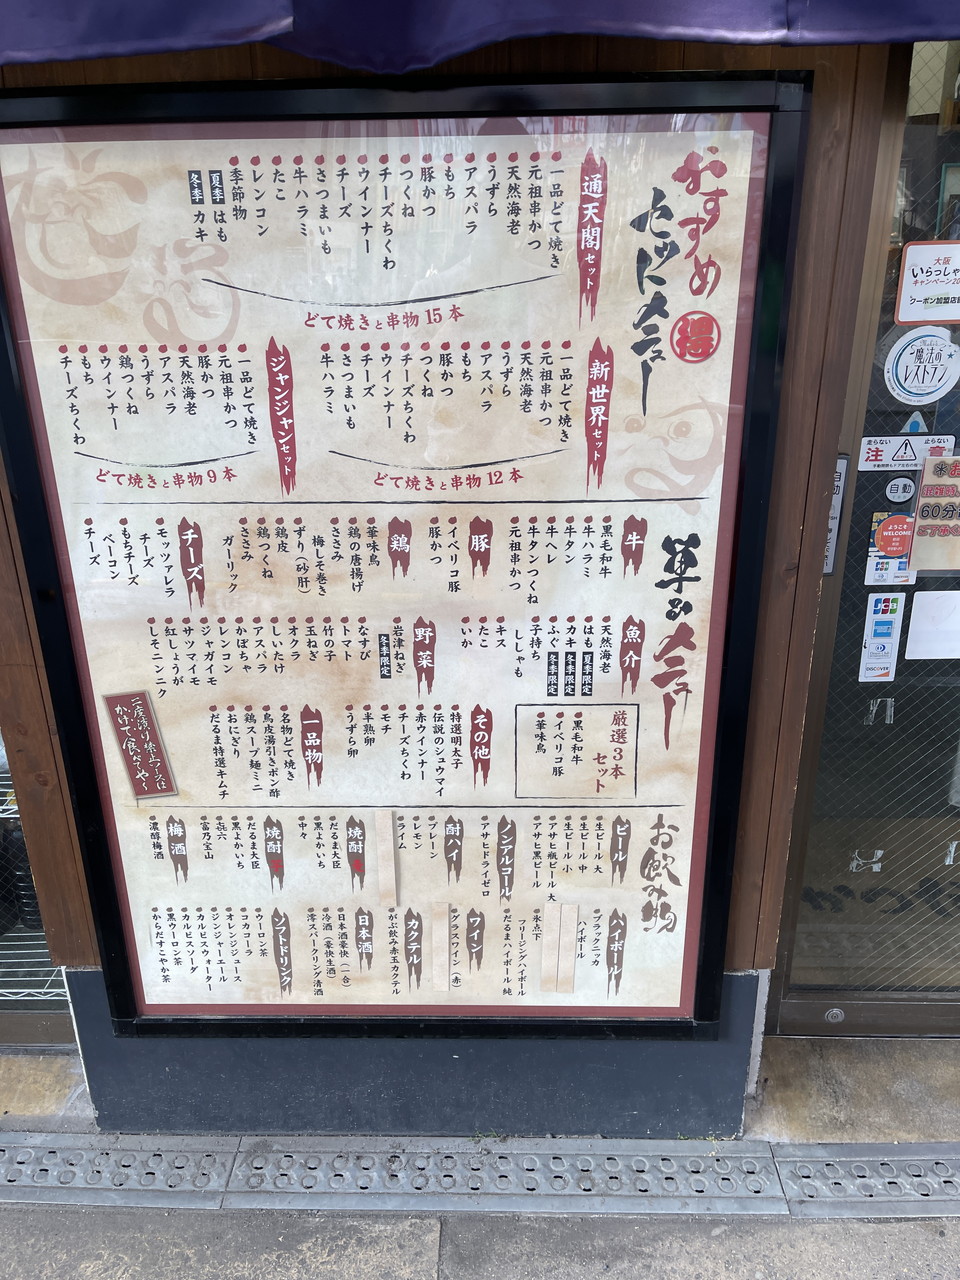 おすすめ
得
セットメニュー
通天閣セット
一品どて焼き
元祖串かつ
天然海老
うずら
アスパラ
もち
豚かつ
つくね
チーズちくわ
ウインナー
チーズ
さつまいも
牛ハラミ
たこ
レンコン
季節物
夏季 はも
冬季 カキ
どて焼きと串物15本
新世界セット
一品どて焼き
元祖串かつ
天然海老
うずら
アスパラ
もち
豚かつ
つくね
チーズちくわ
ウインナー
チーズ
さつまいも
牛ハラミ
どて焼きと串物12本
ジャンジャンセット
一品どて焼き
元祖串かつ
豚かつ
天然海老
アスパラ
うずら
鶏つくね
ウインナー
もち
チーズちくわ
どて焼きと串物9本
単品メニュー
牛
黒毛和牛
牛ハラミ
牛タン
牛ヘレ
牛タンつくね
元祖串かつ
豚
イベリコ豚
豚かつ
鶏
華味鳥
鶏の唐揚げ
ささみ
梅しそ巻き
ずり(砂肝)
鶏皮
鶏つくね
ささみ
ガーリック
チーズ
モッツァレラ
チーズ
もちチーズ
ベーコン
チーズ
魚介
天然海老
はも 夏季限定
カキ 冬季限定
ふぐ 冬季限定
子持ち
ししゃも
キス
たこ
いか
野菜
岩津ねぎ
冬季限定
なすび
トマト
竹の子
玉ねぎ
オクラ
しいたけ
アスパラ
かぼちゃ
レンコン
ジャガイモ
サツマイモ
紅しょうが
しそニンニク
厳選3本
セット
黒毛和牛
イベリコ豚
華味鳥
その他
特選明太子
伝説のシュウマイ
赤ウインナー
チーズちくわ
モチ
半熟卵
うずら卵
一品物
名物どて焼き
鳥皮湯引きポン酢
鶏スープ麺ミニ
おにぎり
だるま特選キムチ
二度漬け禁止ソースは
かけて食べてや~
お飲み物
ビール
生ビール 大
生ビール 中
生ビール 小
アサヒ瓶ビール 大
アサヒ黒ビール
ノンアルコール
アサヒドライゼロ
酎ハイ
プレーン
レモン
ライム
焼酎
だるま大臣
黒よかいち
中々
焼酎
だるま大臣
黒よかいち
㐂六
富乃宝山
梅酒
濃醇梅酒
ハイボール
ブラックニッカ
ハイボール
氷点下
フリージングハイボール
だるまハイボール 純
ワイン
グラスワイン(赤)
カクテル
がぶ飲み赤玉カクテル
日本酒
日本酒豪快(一合)
冷酒(豪快生酒)
澪スパークリング清酒
ソフトドリンク
ウーロン茶
コカコーラ
オレンジジュース
ジンジャーエール
カルピスウォーター
カルピスソーダ
黒ウーロン茶
からだすこやか茶
大阪
いらっしゃ
キャンペーン20
クーポン加盟店
魔法の
レストラン
走らない
止らない
注
意
自動
ようこそ
WELCOME
JCB
JCB
DISCOVER
60分